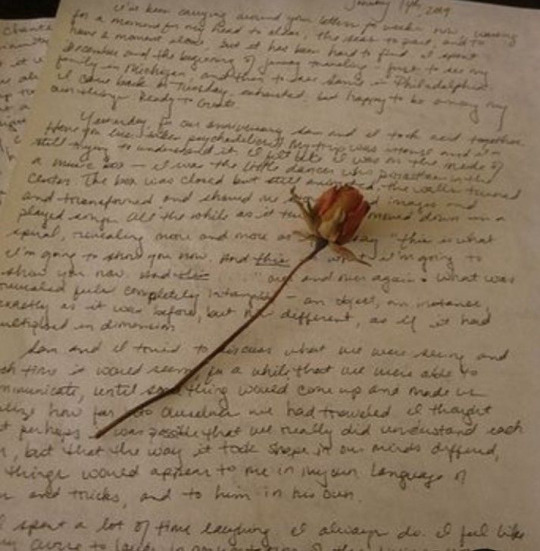 January 14th, 2009
I've been carrying around your letter for weeks now, waiting
for a moment for my head to clear, the seas to part, and to
have a moment alone, but it has been hard to find. I spent
December and the beginning of January traveling - first to see my
family in Michigan, and then to see Sam's in Philadelphia.
I came back on Tuesday - exhausted, but happy to be among my
own things. Ready to create.
Yesterday for our anniversary Sam and I took acid together.
Have you ever taken psychedelics? My trip was intense and I'm
still trying to understand it. I felt like I was on the inside of
a music box - I was the little dancer who pirouettes in the
center. The box was closed but still animated, the walls turned
and transformed and showed me images and
played songs. All the while as it turned moved down in a
spiral, revealing more and more as say "this is what
I'm going to show you now. And this what I'm going to
show you now. And this over and over again - what was
revealed felt completely intangible - an object, an instance,
exactly as it was before, but different, as if it had
multiplied in dimension.
Sam and I tried to discuss what we were seeing and
each time it would seem for a while that we were able to
communicate, until something would come up and made us
realize how far into ourselves we had traveled. I thought
that perhaps it was possible that we really did understand each
other, but that the way it took shape in our minds differed,
things would appear to me in my own language of
and tricks, and to him in his own.
I spent a lot of time laughing. I always do. I feel like